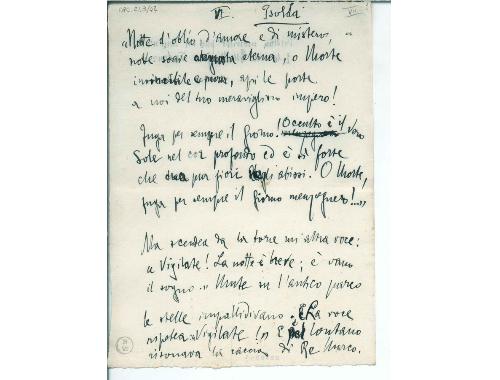 VI. Isolda
«Notte d'oblio d'amore e di mistero,
notte soave eterna, o Morte
invincibile e pura, apri le porte
a noi del tuo meraviglioso impero!
Fuga per sempre il giorno. Occulto è il vero
Sole nel cor profondo ed è sì forte
che pur fiori. O Morte,
fuga per sempre il giorno menzognero!..»
Ma scendea da la torre un'altra voce:
«Vigilate! La notte è breve; è vano
il sogno.» Mute su l'antico parco
le stelle impallidivano. E La voce
ripetea «Vigilate!» E lontano
ritornava la caccia di Re Marco.